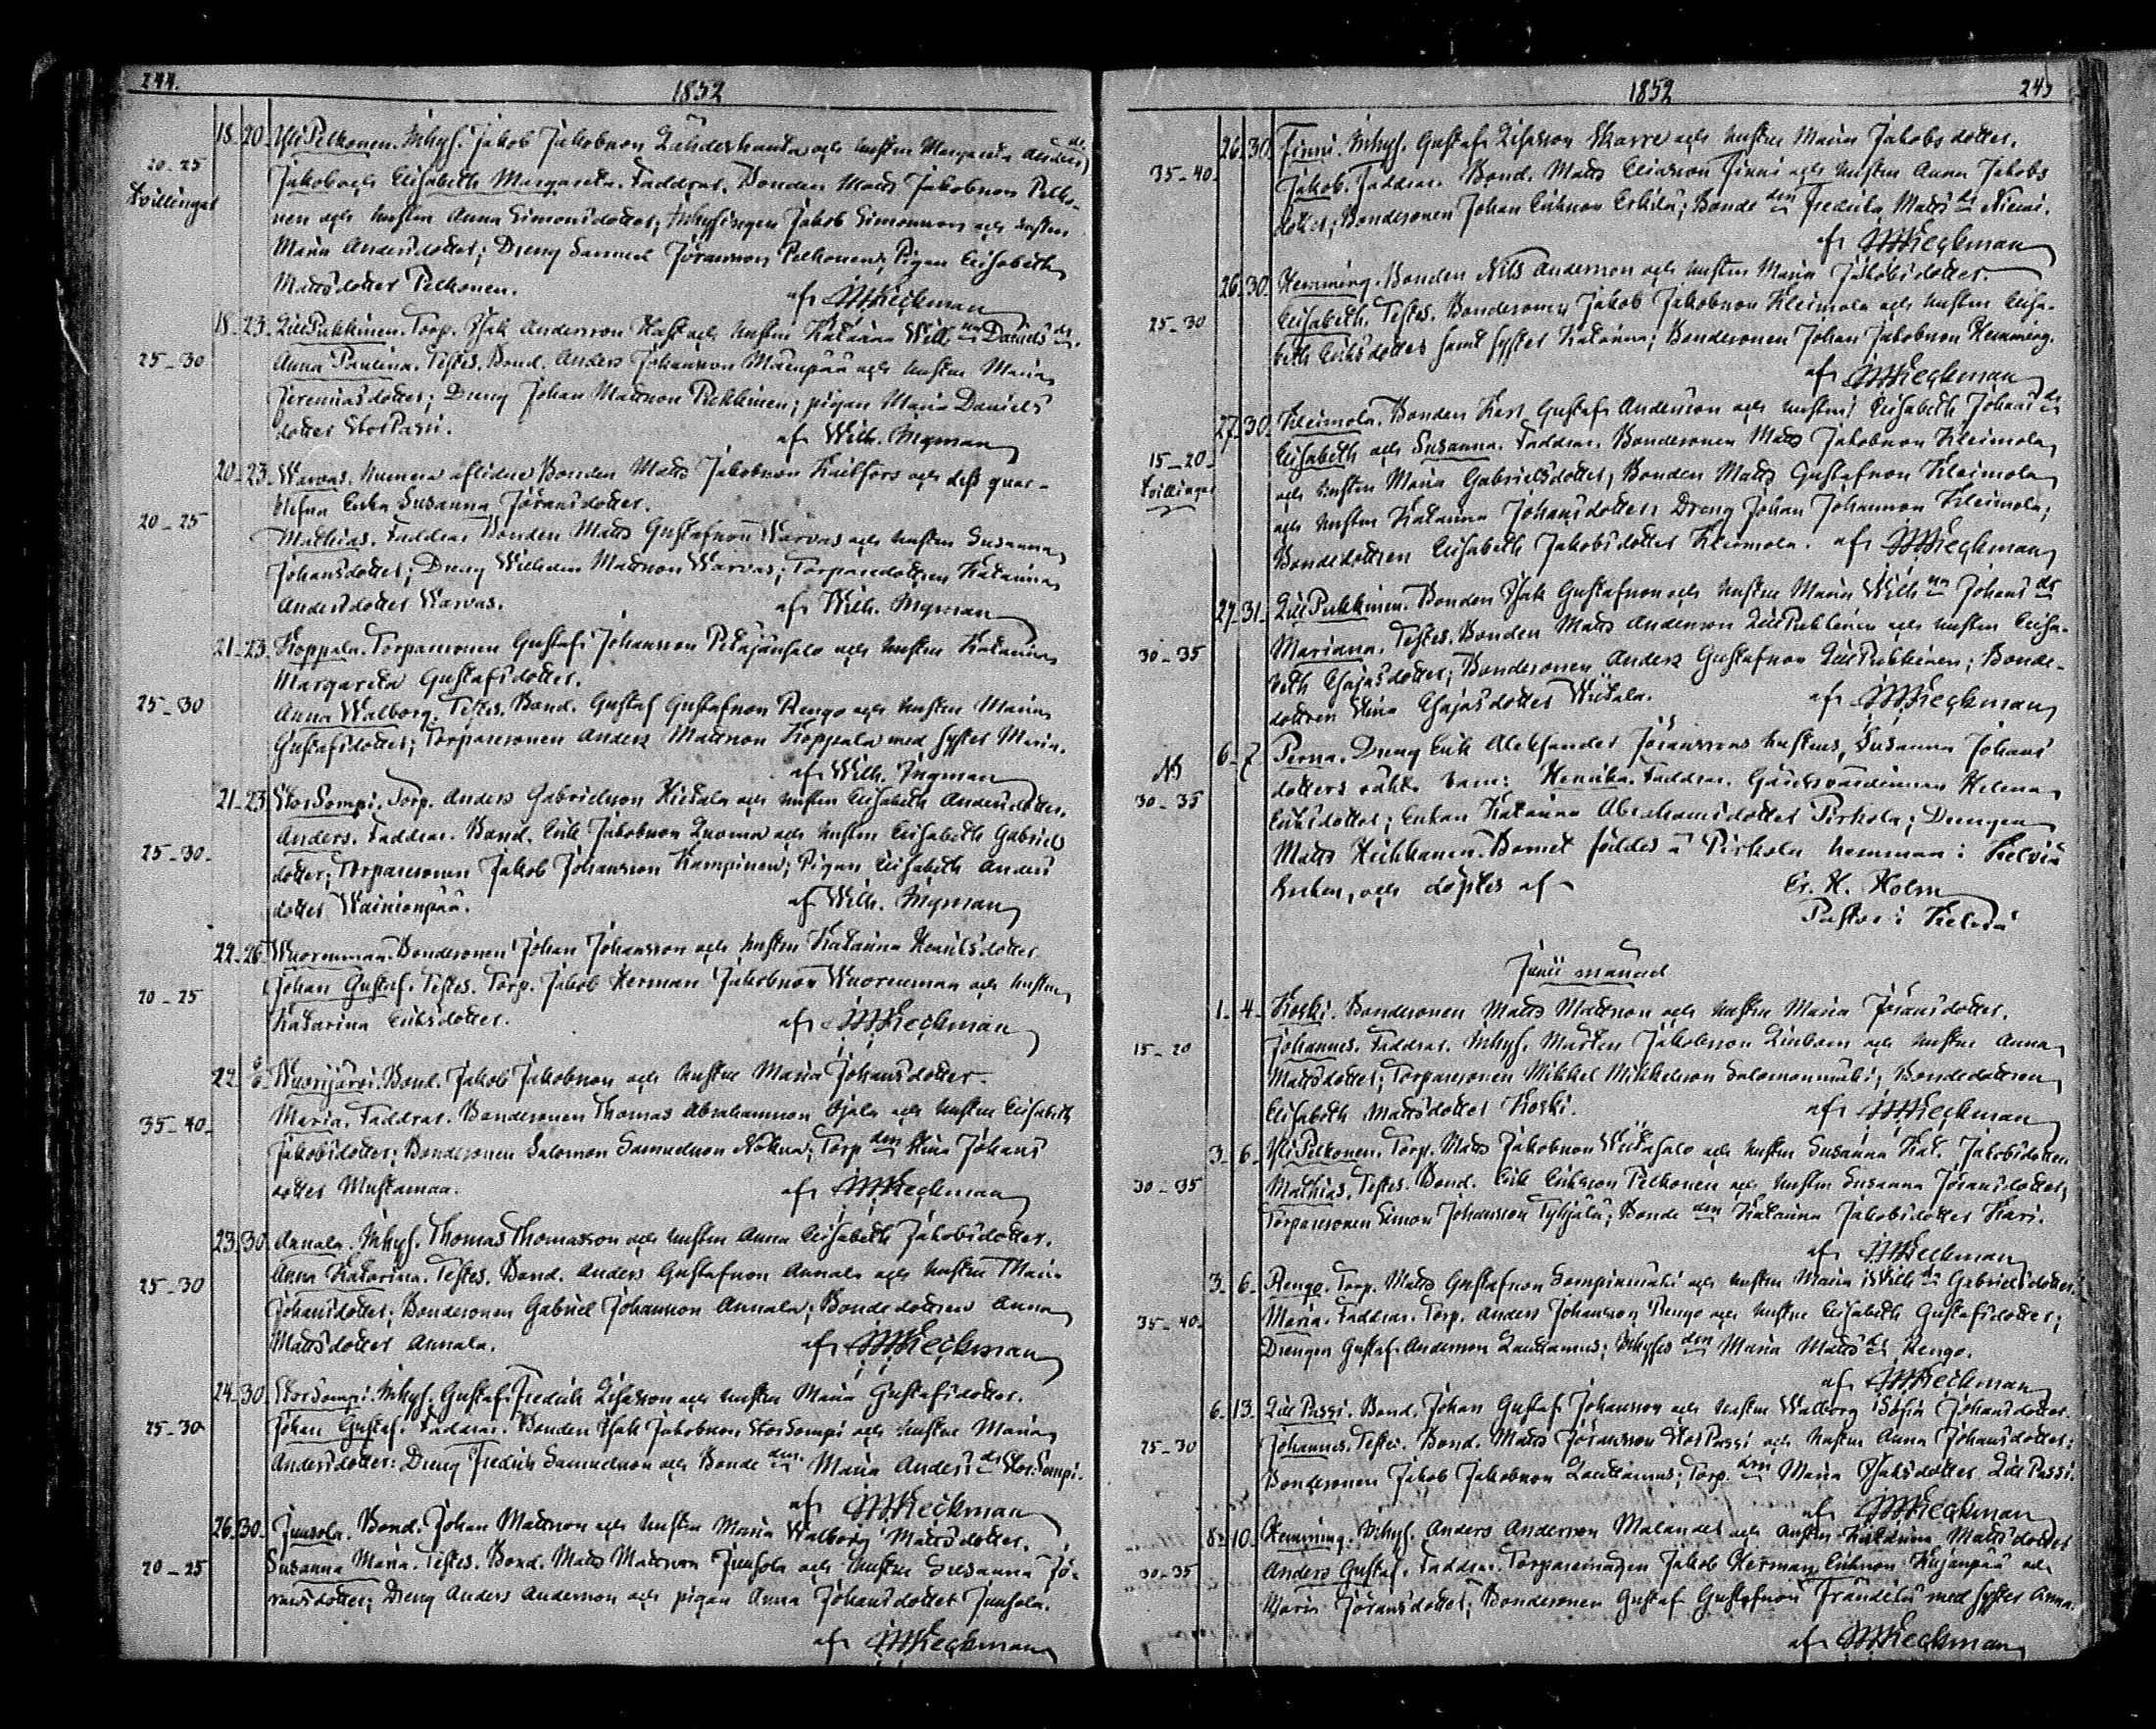 244.
1852
18. 20. Yli Pelkonen. Inhys. Jakob Jakobsson och hustru Margareta Anders dr
20-25 Jakob och Elisabeth Margareta. Faddrar. Bonden Matts Jakobsson Pelko-
tvillingar nen och hustru Anna Simonsdotter; Inhysingen Jakob Simonsson och hustru
Maria Andersdotter; Dreng Samuel Jöransson Pelkonen; Pigan Elisabeth
Mattsdotter Pelkonen. af Heckman
18. 23. Lill Pukkinen. Torp. Isak Andersson och hustru Katarina Wilh na Daniels dr.
25-30 Anna Paulina. Testes. Bond. Anders Johansson Mäenpää och hustru Maria
Jeremiasdotter; Dreng Johan Mattsson Pukkinen; pigan Maria Daniels
dotter StorPassi. af Wilh. Ingman
20. 23. Warvas. Numera aflidne Bonden Matts Jakobsson och dess quar-
blefna Enka Susanna Jöransdotter.
20-25 Mathias. Faddrar Bonden Matts Gustafsson Warvas och hustru Susanna
Johansdotter; Dreng Wilhelm Mattsson Warvas; Torparedottren Katarina
Andersdotter Warvas. af Wilh. Ingman
21. 23. Koppala. Torparesonen Gustaf Johansson Petäjänsalo och hustru Katarina
Margareta Gustafsdotter.
25-30 Anna Walborg. Testes. Bond. Gustaf Gustafsson Rengo och hustru Maria
Gustafsdotter; Torparesonen Anders Mattsson Koppala med syster Maria.
af Wilh. Ingman
21. 23 StorSompi. Torp. Anders Gabrielsson Hietala och hustru Elisabeth Andersdotter.
Anders. Faddrar. Bond. Erik Jakobsson Luoma och hustru Elisabeth Gabriels
25-30. dotter; Torparesonen Jakob Johansson Kampinen; Pigan Elisabeth Anders
dotter Wainionpää. af Wilh. Ingman
22. 26. Wuorenmaa. Bondesonen Johan Johansson och hustru Katarina Henriksdotter
20-25 Johan Gustaf. Testes. Torp. Jakob Herman Jakobsson Wuorenmaa och hustru
Katarina Eriksdotter. af Heckman
22. Wuorijärvi. Bond. Jakob Jakobsson och hustru Maria Johansdotter.
35-40. Maria. Faddrar. Bondesonen Thomas Abrahamsson Ojala och hustru Elisabeth
Jakobsdotter; Bondesonen Salomon Samuelsson; Torp den Stina Johans
dotter Mustamaa. af Heckman
23. 30. Annala. Inhys. Thomas Thomasson och hustru Anna Elisabeth Jakobsdotter.
25-30 Anna Katarina. Testes. Bond. Anders Gustafsson Annala och hustru Maria
Johansdotter; Bondesonen Gabriel Johansson Annala; Bondedottren Anna
Mattsdotter Annala. af Heckman
24. 30. StorSompi. Inhys. Gustaf Fredrik och hustru Maria Gustafsdotter.
25-30 Johan Gustaf. Faddrar. Bonden Isak Jakobsson StorSompi och hustru Maria
Andersdotter: Dreng Fredrik Samuelsson och Bonde den Maria Anders dr Stor:Sompi.
af Heckman
26. 30. Junsola. Bond. Johan Mattsson och hustru Maria Walborg Mattsdotter.
20-25 Susanna Maria. Testes. Bond. Matts Mattsson Junsola och hustru Susanna Jö-
ransdotter; Dreng Anders Andersson och pigan Anna Johansdotter Junsola.
af Heckman
1852
245
26. 30. Finni. Inhys. Gustaf och hustru Maria Jakobsdotter.
35-40. Jakob. Faddrar. Bond. Matts Eliasson Finni och hustru Anna Jakobs
dotter; Bondesonen Johan Eriksson; Bonde den Fredrika Matts dr Niemi.
af Heckman
26. 30. Hemming. Bonden Nils Andersson och hustru Maria Jakobsdotter.
25-30 Elisabeth. Testes. Bondesonen Jakob Jakobsson Kleimola och hustru Elisa-
beth Eriksdotter samt syster Katarina; Bondesonen Johan Jakobsson Hemming.
af Heckman
27. 30. Kleimola. Bonden Karl Gustaf Andersson och hustru Elisabeth Johans dr
15-20. Elisabeth och Susanna. Faddrar. Bondesonen Matts Jakobsson Kleimola
tvillingar och hustru Maria Gabrielsdotter; Bonden Matts Gustafsson Kleimola
och hustru Katarina Johansdotter; Dreng Johan Johansson Kleimola;
Bondedottren Elisabeth Jakobsdotter Kleimola. af Heckman
27. 31. Lill Pukkinen. Bonden Isak Gustafsson och hustru Maria Wilh na Johans dr
30-35 Mariana. Testes. Bonden Matts Andersson Lill Pukkinen och hustru Elisa-
beth Esajasdotter; Bondesonen Anders Gustafsson Lill Pukkinen; Bonde-
dottren Stina Esajasdotter. af Heckman
6. 7 Perna. Dreng Erik Aleksander Jöranssons hustrus, Susanna Johans
NB dotters äkta barn: Henrika. Faddrar. Gårdsvärdinnan Helena
30-35 Eriksdotter; Enkan Katarina Abrahamsdotter Pirkola; Drengen
Matts Heikkanen. Barnet föddes å Pirkola hemman i Kelviå
Socken, och döptes af Er. H. Holm
Pastor i Kelviå
Junii månad
1. 4. Koski. Bondesonen Matts Mattsson och hustru Maria Jöransdotter.
15-20 Johannes. Faddrar. Inhys. Mårten Jakobsson Linbom och hustru Anna
Mattsdotter; Torparesonen Mikkel Mikkelsson Salomonmäki; Bondedottren
Elisabeth Mattsdotter Koski. af Heckman
3. 6. Yli Pelkonen. Torp. Matts Jakobsson Wiitasalo och hustru Susanna Kat. Jakobsdotter.
30-35 Mathias. Testes. Bond. Erik Eriksson Pelkonen och hustru Susanna Jöransdotter;
Torparesonen Simon Johansson Pyhjälä; Bonde den Katarina Jakobsdotter Kari.
af Heckman
3. 6. Rengo. Torp. Matts Gustafsson Sompinmäki och hustru Maria Wilh na Gabrielsdotter.
35-40. Maria. Faddrar. Torp. Anders Johansson Rengo och hustru Elisabeth Gustafsdotter;
Drengen Gustaf Andersson Lauttamus; Inhyses den Maria Matts dr Rengo.
af Heckman
6. 13. Lill Passi. Bond. Johan Gustaf Johansson och hustru Walborg Sofia Johansdotter.
25-30 Johannes. Testes. Bond. Matts Jöransson StorPassi och hustru Anna Johansdotter;
Bondesonen Jakob Jakobsson Lauttamus; Torp. den Maria Isaksdotter Lill Passi.
af Heckman
8. 10. Hemming. Inhys. Anders Andersson Malander och hustru Katarina Mattsdotter
30-35 Anders Gustaf. Faddrar. Torparemågen Jakob Herman Eriksson och
Maria Jöransdotter; Bondesonen Gustaf Gustafsson Frändilä med syster Anna.
af Heckman